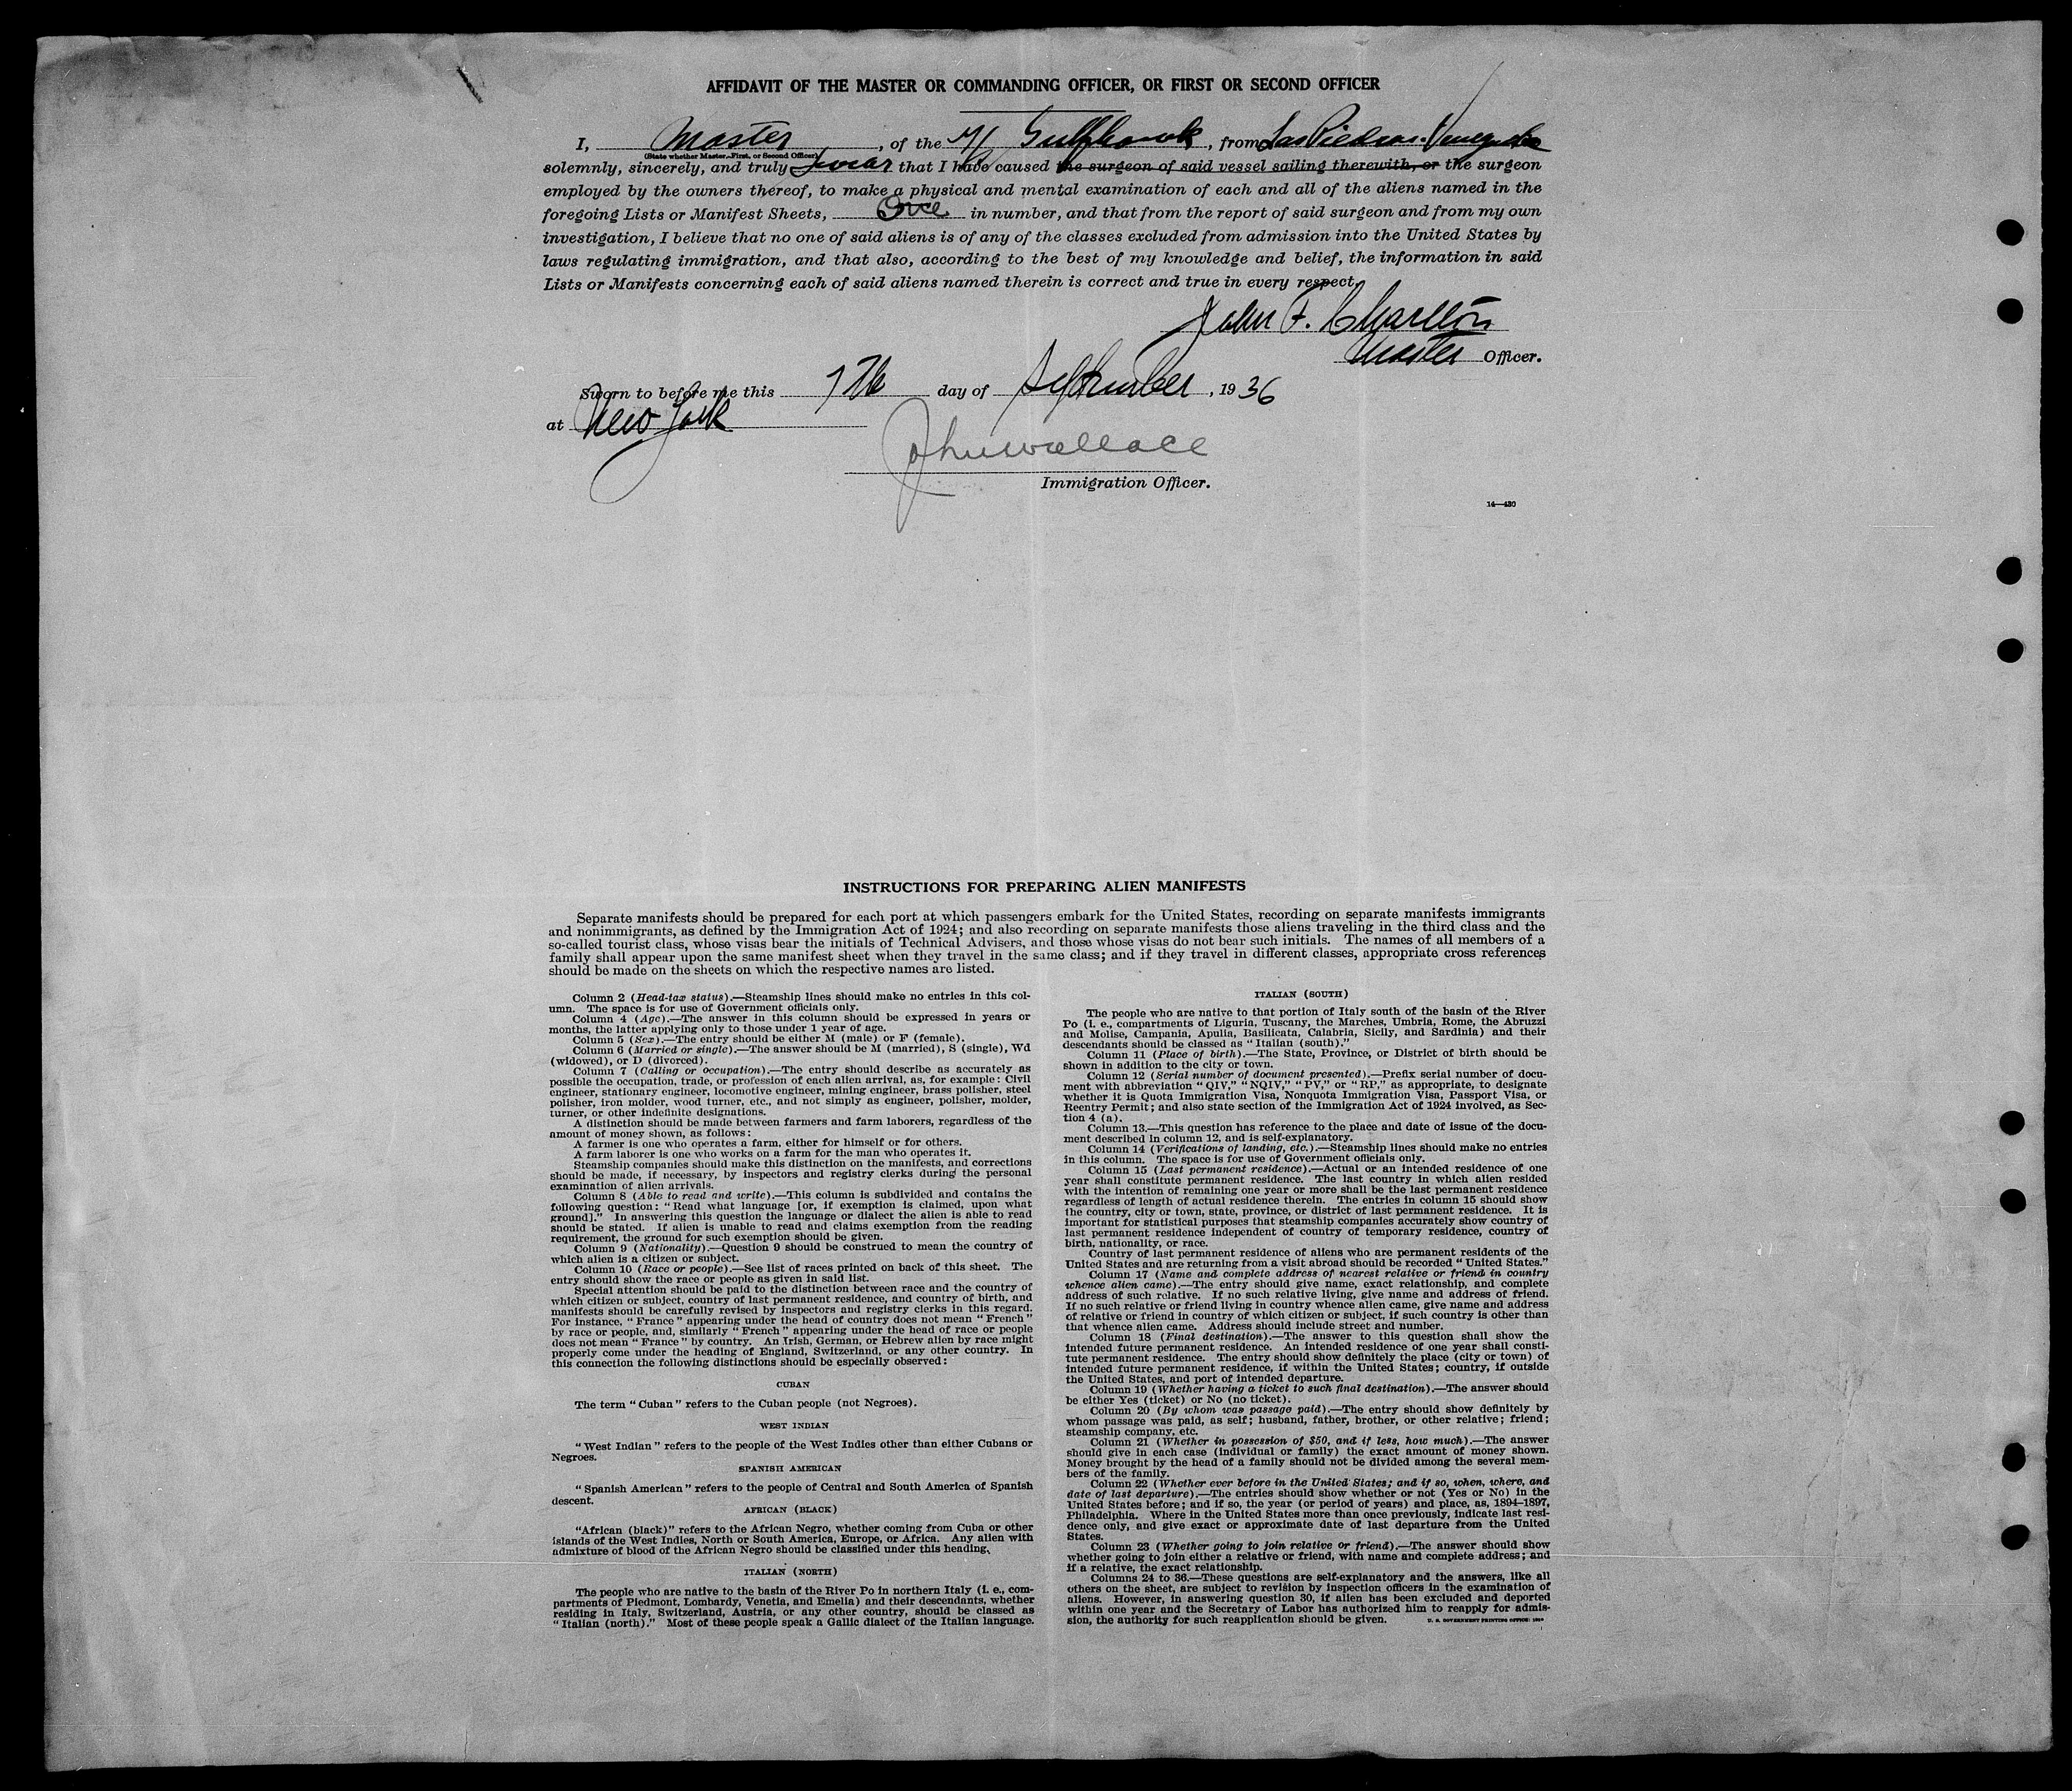 AFFIDAVIT OF THE MASTER OR COMMANDING OFFICER, OR FIRST OR SECOND OFFICER
I, Master, of the Gulfhawk, from Las Piedras. Venezuela
(State whether Master, First, or Second Officer)
solemnly, sincerely, and truly swear that I have caused the surgeon of said vessel sailing therewith, or the surgeon
employed by the owners thereof, to make a physical and mental examination of each and all of the aliens named in the
foregoing Lists or Manifest Sheets, One in number, and that from the report of said surgeon and from my own
investigation, I believe that no one of said aliens is of any of the classes excluded from admission into the United States by
laws regulating immigration, and that also, according to the best of my knowledge and belief, the information in said
Lists or Manifests concerning each of said aliens named therein is correct and true in every respect.
John F. Charlton
Master Officer.
Sworn to before me this 7th day of September, 1936
at New York
John Wallace
Immigration Officer.
14—430
INSTRUCTIONS FOR PREPARING ALIEN MANIFESTS
Separate manifests should be prepared for each port at which passengers embark for the United States, recording on separate manifests immigrants
and nonimmigrants, as defined by the Immigration Act of 1924; and also recording on separate manifests those aliens traveling in the third class and the
so-called tourist class, whose visas bear the initials of Technical Advisers, and those whose visas do not bear such initials. The names of all members of a
family shall appear upon the same manifest sheet when they travel in the same class; and if they travel in different classes, appropriate cross references
should be made on the sheets on which the respective names are listed.
Column 2 (Head-tax status).—Steamship lines should make no entries in this col-
umn. The space is for use of Government officials only.
Column 4 (Age).—The answer in this column should be expressed in years or
months, the latter applying only to those under 1 year of age.
Column 5 (Sex).—The entry should be either M (male) or F (female).
Column 6 (Married or single).—The answer should be M (married), S (single), Wd
(widowed), or D (divorced).
Column 7 (Calling or occupation).—The entry should describe as accurately as
possible the occupation, trade, or profession of each alien arrival, as, for example: Civil
engineer, stationary engineer, locomotive engineer, mining engineer, brass polisher, steel
polisher, iron molder, wood turner, etc., and not simply as engineer, polisher, molder,
turner, or other indefinite designations.
A distinction should be made between farmers and farm laborers, regardless of the
amount of money shown, as follows:
A farmer is one who operates a farm, either for himself or for others.
A farm laborer is one who works on a farm for the man who operates it.
Steamship companies should make this distinction on the manifests, and corrections
should be made, if necessary, by inspectors and registry clerks during the personal
examination of alien arrivals.
Column 8 (Able to read and write).—This column is subdivided and contains the
following question: "Read what language [or, if exemption is claimed, upon what
ground]." In answering this question the language or dialect the alien is able to read
should be stated. If alien is unable to read and claims exemption from the reading
requirement, the ground for such exemption should be given.
Column 9 (Nationality).—Question 9 should be construed to mean the country of
which alien is a citizen or subject.
Column 10 (Race or people).—See list of races printed on back of this sheet. The
entry should show the race or people as given in said list.
Special attention should be paid to the distinction between race and the country of
which citizen or subject, country of last permanent residence, and country of birth, and
manifests should be carefully revised by inspectors and registry clerks in this regard.
For instance, "France" appearing under the head of country does not mean "French"
by race or people, and, similarly "French" appearing under the head of race or people
does not mean "France" by country. An Irish, German, or Hebrew alien by race might
properly come under the heading of England, Switzerland, or any other country. In
this connection the following distinctions should be especially observed:
CUBAN
The term "Cuban" refers to the Cuban people (not Negroes).
WEST INDIAN
"West Indian" refers to the people of the West Indies other than either Cubans or
Negroes.
SPANISH AMERICAN
"Spanish American" refers to the people of Central and South America of Spanish
descent.
AFRICAN (BLACK)
"African (black)" refers to the African Negro, whether coming from Cuba or other
islands of the West Indies, North or South America, Europe, or Africa. Any alien with
admixture of blood of the African Negro should be classified under this heading.
ITALIAN (NORTH)
The people who are native to the basin of the River Po in northern Italy (i. e., com-
partments of Piedmont, Lombardy, Venetia, and Emelia) and their descendants, whether
residing in Italy, Switzerland, Austria, or any other country, should be classed as
"Italian (north)." Most of these people speak a Gallic dialect of the Italian language.
ITALIAN (SOUTH)
The people who are native to that portion of Italy south of the basin of the River
Po (i. e., compartments of Liguria, Tuscany, the Marches, Umbria, Rome, the Abruzzi
and Molise, Campania, Apulia, Basilicata, Calabria, Sicily, and Sardinia) and their
descendants should be classed as "Italian (south)."
Column 11 (Place of birth).—The State, Province, or District of birth should be
shown in addition to the city or town.
Column 12 (Serial number of document presented).—Prefix serial number of docu-
ment with abbreviation "QIV," "NQIV," "PV," or "RP," as appropriate, to designate
whether it is Quota Immigration Visa, Nonquota Immigration Visa, Passport Visa, or
Reentry Permit; and also state section of the Immigration Act of 1924 involved, as Sec-
tion 4 (a).
Column 13.—This question has reference to the place and date of issue of the docu-
ment described in column 12, and is self-explanatory.
Column 14 (Verifications of landing, etc.).—Steamship lines should make no entries
in this column. The space is for use of Government officials only.
Column 15 (Last permanent residence).—Actual or an intended residence of one
year shall constitute permanent residence. The last country in which alien resided
with the intention of remaining one year or more shall be the last permanent residence
regardless of length of actual residence therein. The entries in column 15 should show
the country, city or town, state, province, or district of last permanent residence. It is
important for statistical purposes that steamship companies accurately show country of
last permanent residence independent of country of temporary residence, country of
birth, nationality, or race.
Country of last permanent residence of aliens who are permanent residents of the
United States and are returning from a visit abroad should be recorded "United States."
Column 17 (Name and complete address of nearest relative or friend in country
whence alien came).—The entry should give name, exact relationship, and complete
address of such relative. If no such relative living, give name and address of friend.
If no such relative or friend living in country whence alien came, give name and address
of relative or friend in country of which citizen or subject, if such country is other than
that whence alien came. Address should include street and number.
Column 18 (Final destination).—The answer to this question shall show the
intended future permanent residence. An intended residence of one year shall consti-
tute permanent residence. The entry should show definitely the place (city or town) of
intended future permanent residence, if within the United States; country, if outside
the United States, and port of intended departure.
Column 19 (Whether having a ticket to such final destination).—The answer should
be either Yes (ticket) or No (no ticket).
Column 20 (By whom was passage paid).—The entry should show definitely by
whom passage was paid, as self; husband, father, brother, or other relative; friend;
steamship company, etc.
Column 21 (Whether in possession of $50, and if less, how much).—The answer
should give in each case (individual or family) the exact amount of money shown.
Money brought by the head of a family should not be divided among the several mem-
bers of the family.
Column 22 (Whether ever before in the United States; and if so, when, where, and
date of last departure).—The entries should show whether or not (Yes or No) in the
United States before; and if so, the year (or period of years) and place, as, 1894–1897,
Philadelphia. Where in the United States more than once previously, indicate last resi-
dence only, and give exact or approximate date of last departure from the United
States.
Column 23 (Whether going to join relative or friend).—The answer should show
whether going to join either a relative or friend, with name and complete address; and
if a relative, the exact relationship.
Columns 24 to 36.—These questions are self-explanatory and the answers, like all
others on the sheet, are subject to revision by inspection officers in the examination of
aliens. However, in answering question 30, if alien has been excluded and deported
within one year and the Secretary of Labor has authorized him to reapply for admis-
sion, the authority for such reapplication should be given.
U. S. GOVERNMENT PRINTING OFFICE: